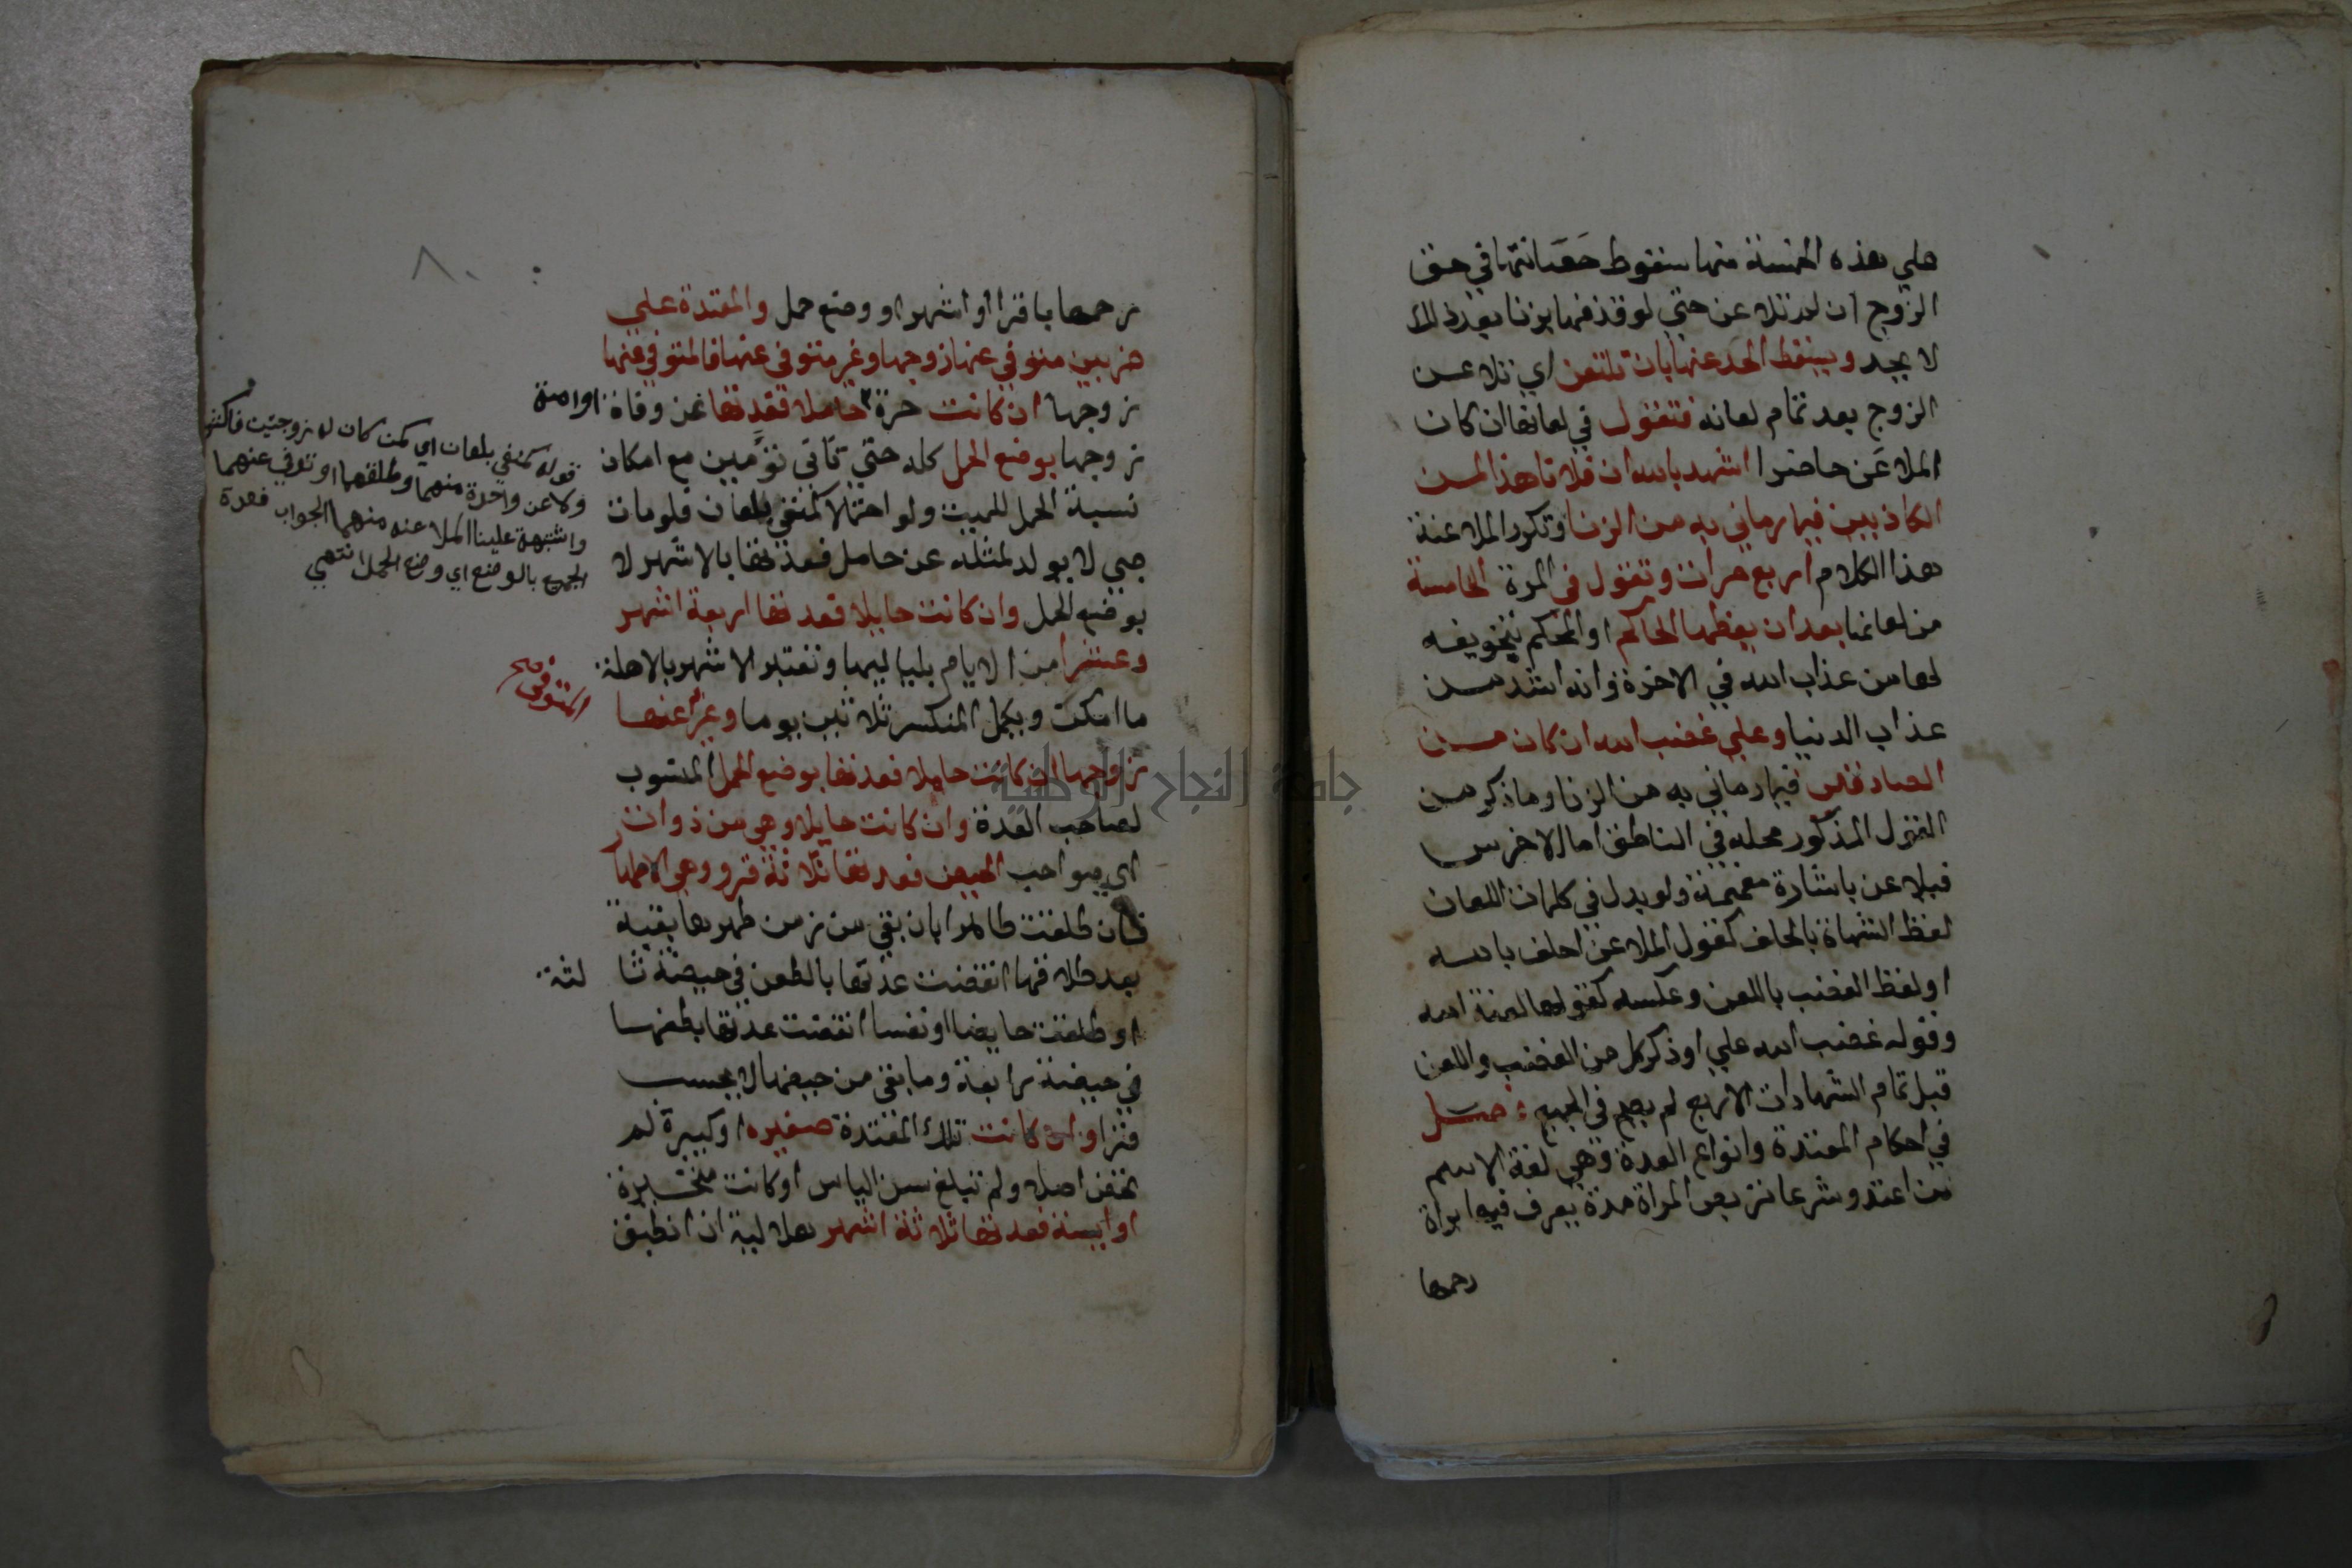 علي هذه الخمسة منها سقوط حصانتها في حق
الزوج ان لم تلاعن حتي لو قذفها بزنا بعد ذلك
لا يحد ويسقط الحد عنها بان تلتعن اي تلاعن
الزوج بعد تمام لعانه فتقول في لعانها ان كان
الملاعن حاضرا اشهد بالله ان فلانا هذا لمن
الكاذبين فيما رماني به من الزنا وتكرر الملاعنة
هذا الكلام اربع مرات وتقول في المرة الخامسة
من لعانها بعد ان يعظها الحاكم او المحكم بتخويفه
لها من عذاب الله في الاخرة وانه اشد من
عذاب الدنيا وعلي غضب الله ان كان من
الصادقين فيما رماني به من الزنا وما ذكر من
القول المذكور محله في الناطق اما الاخرس
فيلاعن باشارة مفهمة ولو بدل في كلمات اللعان
لفظ الشهاة بالحلف كقول الملاعن احلف بالله
او لفظ الغضب باللعن وعكسه كقولها لعنة الله
وقوله غضب الله علي او ذكر كل من الغضب واللعن
قبل تمام الشهادات الاربع لم يصح في الجميع فصل
في احكام المعتدة وانواع العدة وهي لغة الاسم
من اعتد وشرعا تربص المراة مدة يعرف فيها براة
رحمها
٨٠
رحمها باقرا او اشهر او وضع حمل والمعتدة علي
ضربين متوفي عنها زوجها وغير متوفي عنها فالمتوفي عنها
زوجها ان كانت حرة حاملا فعدتها عن وفاة
او امة
زوجها بوضع الحمل كله حتي ثاني تؤمين مع امكان
نسبة الحمل للميت ولو احتمالا كمنفي بلعان فلو مات
صبي لا يولد لمثله عن حامل فعدتها بالاشهر لا
بوضع الحمل وان كانت حايلا فعدتها اربعة اشهر
وعشرا من الايام بلياليها وتعتبر الاشهر بالاهلة
ما امكن ويكمل المنكسر ثلاثين يوما وغير عنها
المتوفي صح
زوجها ان كانت حاملا فعدتها بوضع الحمل المنسوب
لصاحب العدة وان كانت حايلا وهي من ذوات
اي صواحب الحيض فعدتها ثلاثة قرو وهي الاطهار
فان طلقت طاهرا بان بقي من زمن طهرها بقية
بعد طلاقها انقضت عدتها بالطعن في حيضة ثا
لثة
او طلقت حايضا او نفسا انقضت عدتها بطعنها
في حيضة رابعة وما بقي من حيضها لا يحسب
قرا وان كانت تلك المعتدة صغيره او كبيرة لم
تحض اصلا ولم تبلغ سن الياس او كانت متحيرة
او ايسة فعدتها ثلاثة اشهر هلالية ان انطبق
قوله كمنفي بلعان اي كمن كان له زوجتين
ولاعن واحدة منهما وطلقهما او توفي عنهما
واشتبهة علينا الملاعنه منهما الجواب فعدة
الجميع بالوضع اي وضع الحمل انتهي
جامعة النجاح الوطنية